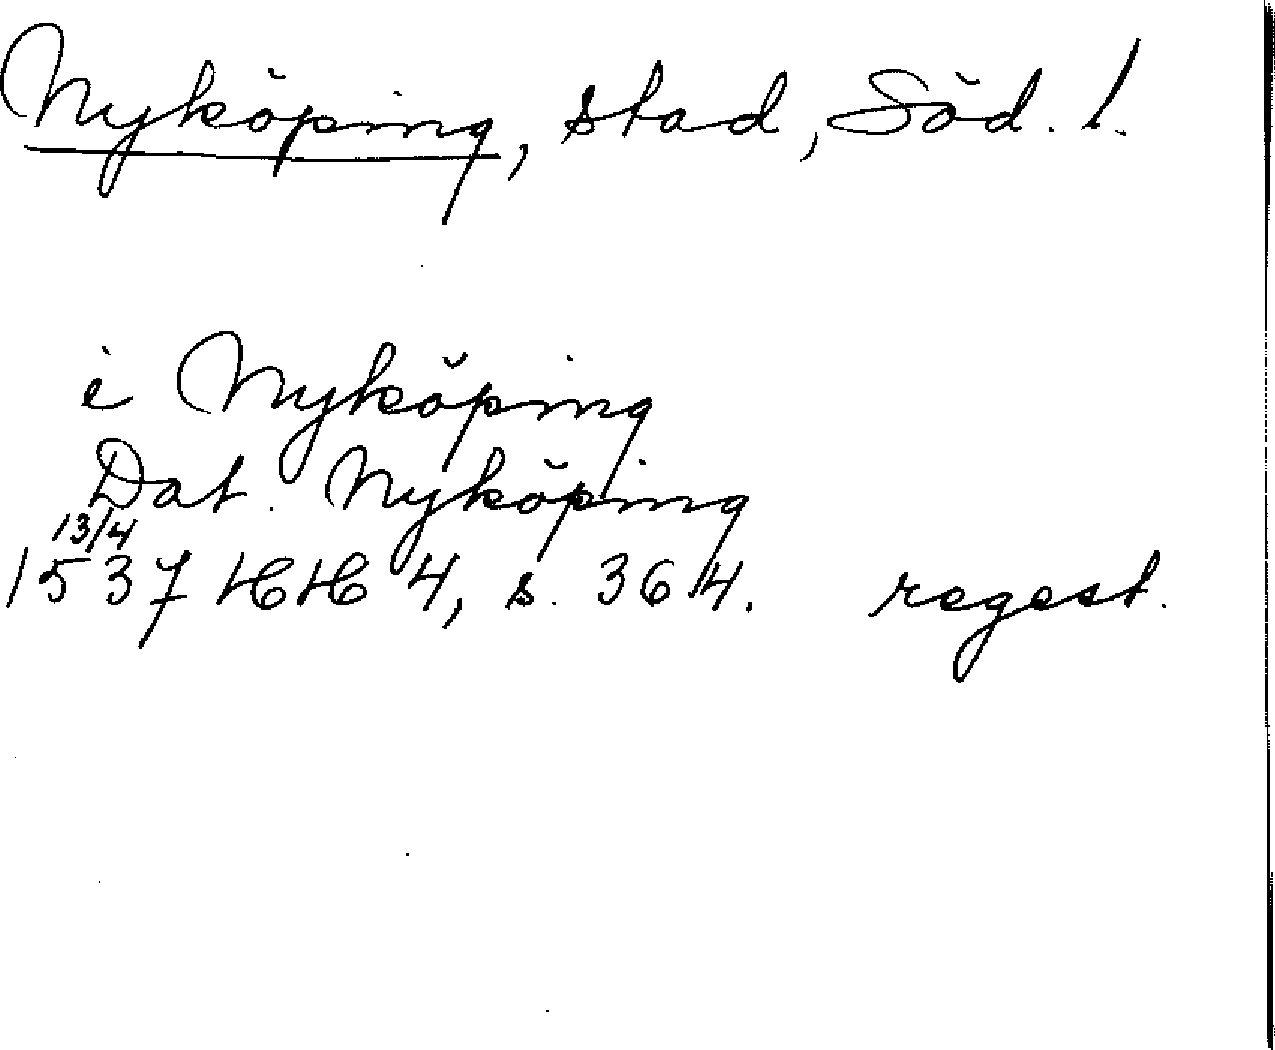 Nyköping, stad, Söd. l.
i Nyköping
Dat. Nyköping
13/4
1537 HH 4, s. 364. regest.